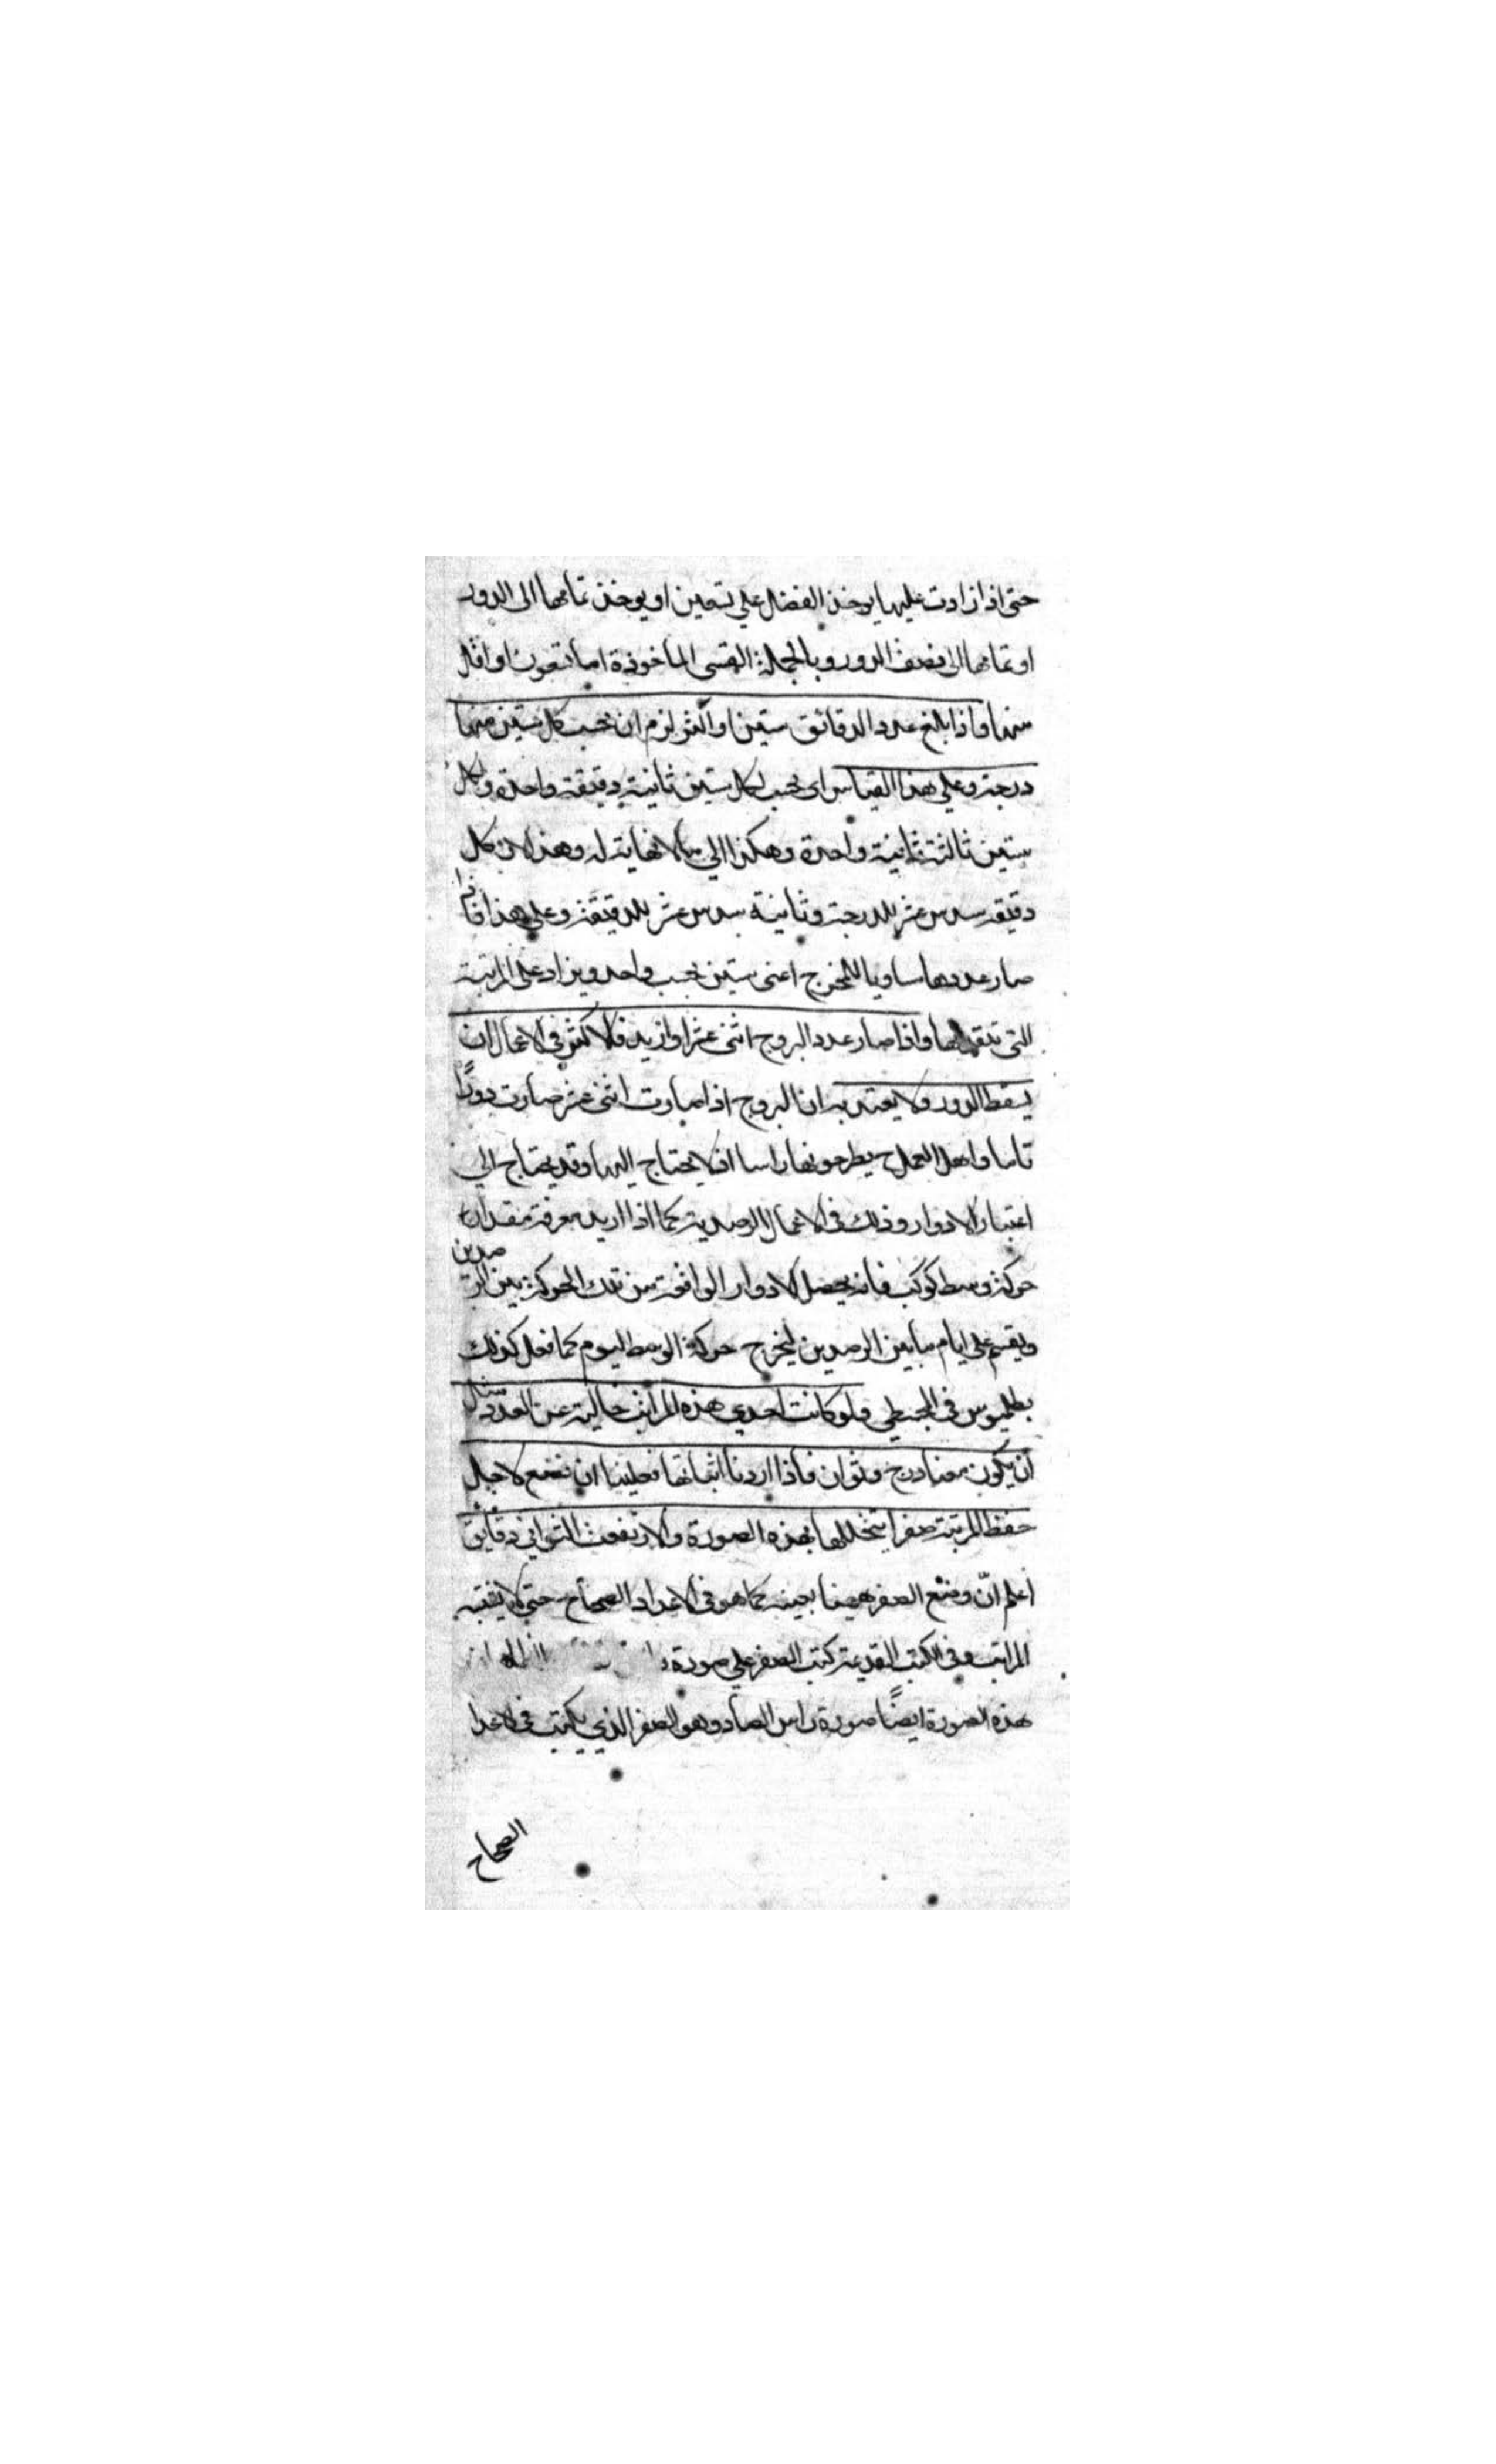 حتى اذا زادت عليها يوخذ الفضل على تسعين او يوخذ تمامها الى الدور
او تمامها الى نصف الدور وبالجملة القسى الماخوذة اما تسعون او اقل
منها واذا بلغ عدد الدقائق ستين او اكثر لزم ان تحسب كل ستين منها
درجة وعلى هذا القياس اى تحسب لكل ستين ثانية دقيقة واحدة ولكل
ستين ثالثة ثانية واحدة وهكذا الى ما لا نهاية له وهذا لان كل
دقيقة سدس عشر للدرجة وثانية سدس عشر للدقيقة وعلى هذا فاذا
صار عددها مساويا للمخرج اعنى ستين تحسب واحد ويزاد على المرتبة
التى تتقدمها واذا صار عدد البروج اثنى عشر او ازيد فالاكثر فى الاعمال ان
يسقط الدور ولا يعتد به ان البروج اذا صارت اثنى عشر صارت دورًا
تاما واهل العمل ح يطرحونها راسا اذ لا يحتاج اليها وقد يحتاج الى
اعتبار الادوار وذلك فى الاعمال الرصدية كما اذا اريد معرفة مقدار
حركة وسط كوكب فانه يحصل الادوار الواقعة من تلك الحركة بين الرصدين
ويقسم على ايام ما بين الرصدين ليخرج حركة الوسط ليوم كما فعل كذلك
بطلميوس فى المجسطى ولو كانت احدى هذه المراتب خالية عن العدد مثال
ان يكون معنا درج وثوان فاذا اردنا اثباتها فعلينا ان نضع لاجل
حفظ المرتبة صفرا يتخللها بهذه الصورة والا ارتفعت الثوانى دقايق
اعلم انّ وضع الصفر ههنا بعينه كما هو فى الاعداد الصحاح حتى لا يفتبه
المراتب وفى الكتب القديمة كتب الصفر على صورة
هذه الصورة ايضًا صورة راس الصاد وهو الصفر الذى يكتب فى الاعدا
الصحاح